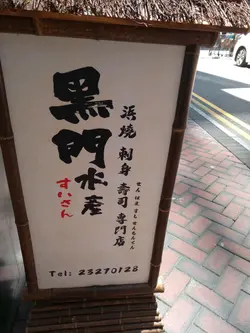 黒門水産
すいさん
浜燒 刺身 寿司 専門店
Tel: 23270128